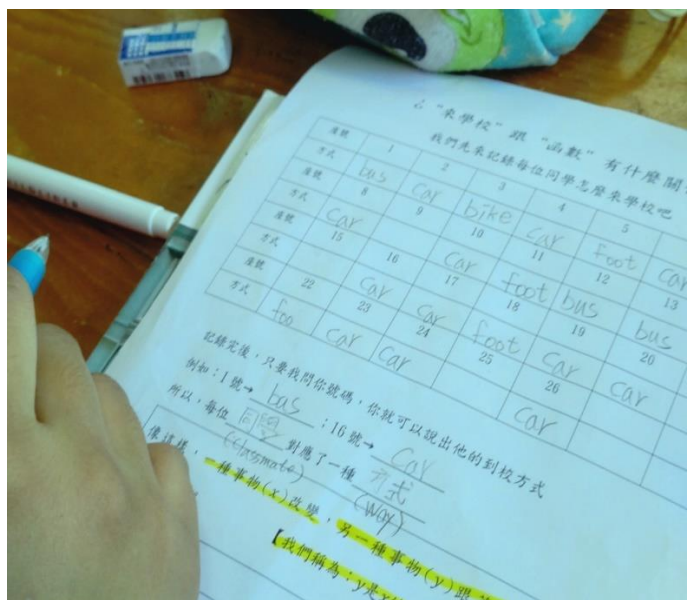 “來學校” 跟 “函數” 有什麼關
我們先來記錄每位同學怎麼來學校吧
座號 1 2 3 4 5
方式 bus Car bike car foot Car
座號 8 9 10 11 12 13
方式 Car Car foot bus bus
座號 15 16 17 18 19 20
方式 Car Car foot Car Car
座號 22 23 24 25 26
方式 foo Car Car Car
記錄完後，只要我問你號碼，你就可以說出他的到校方式
例如：1號→ bas ；16號→ Car
所以，每位 同學 對應了一種 方式
(Classmate) (Way)
像這樣，一種事物(x)改變，另一種事物(y)跟
【我們稱為：y是x